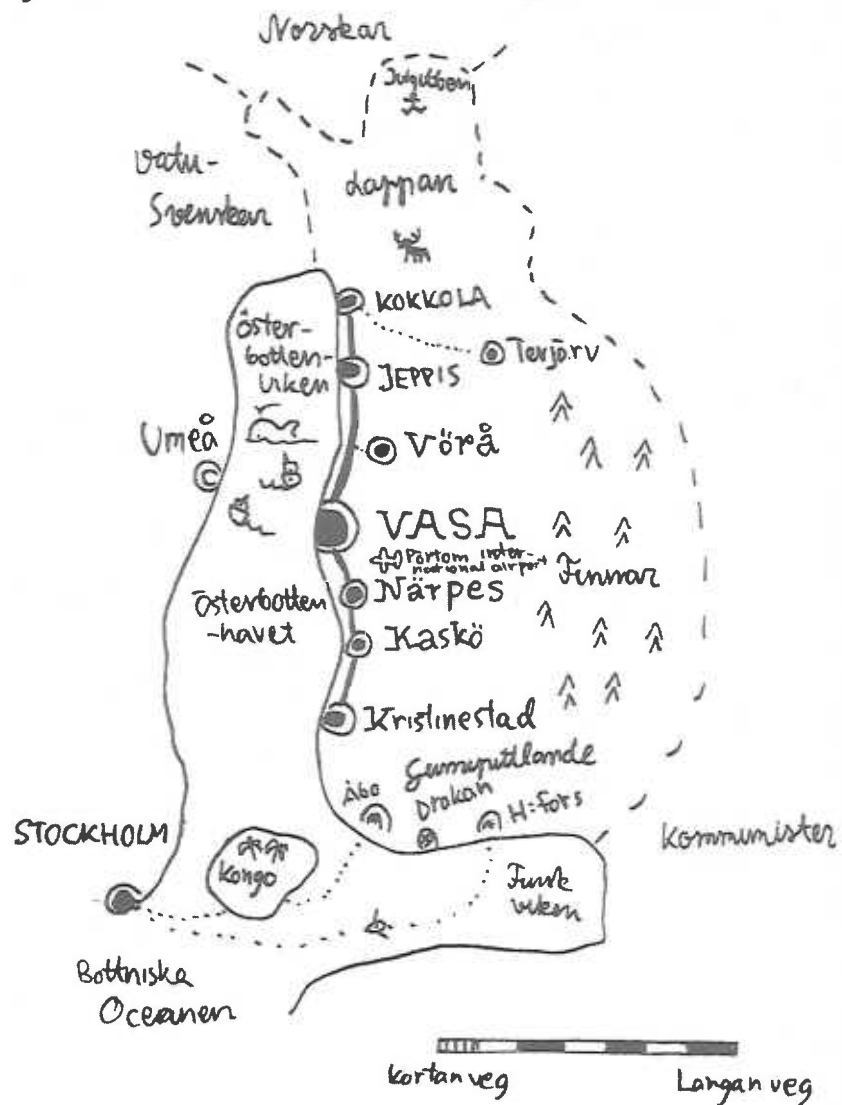 Norskar
Julgubben
Vatu-
Svenskar
Lappan
KOKKOLA
Öster-
botten-
viken
Terjärv
JEPPIS
Umeå
Vörå
VASA
Pörtom inter-
national airport
Finnar
Närpes
Österbotten
-havet
Kaskö
Kristinestad
Åbo
Drakan
H:fors
STOCKHOLM
Kommunister
Kongo
Finsk
viken
Bottniska
Oceanen
kortan veg
Langan veg